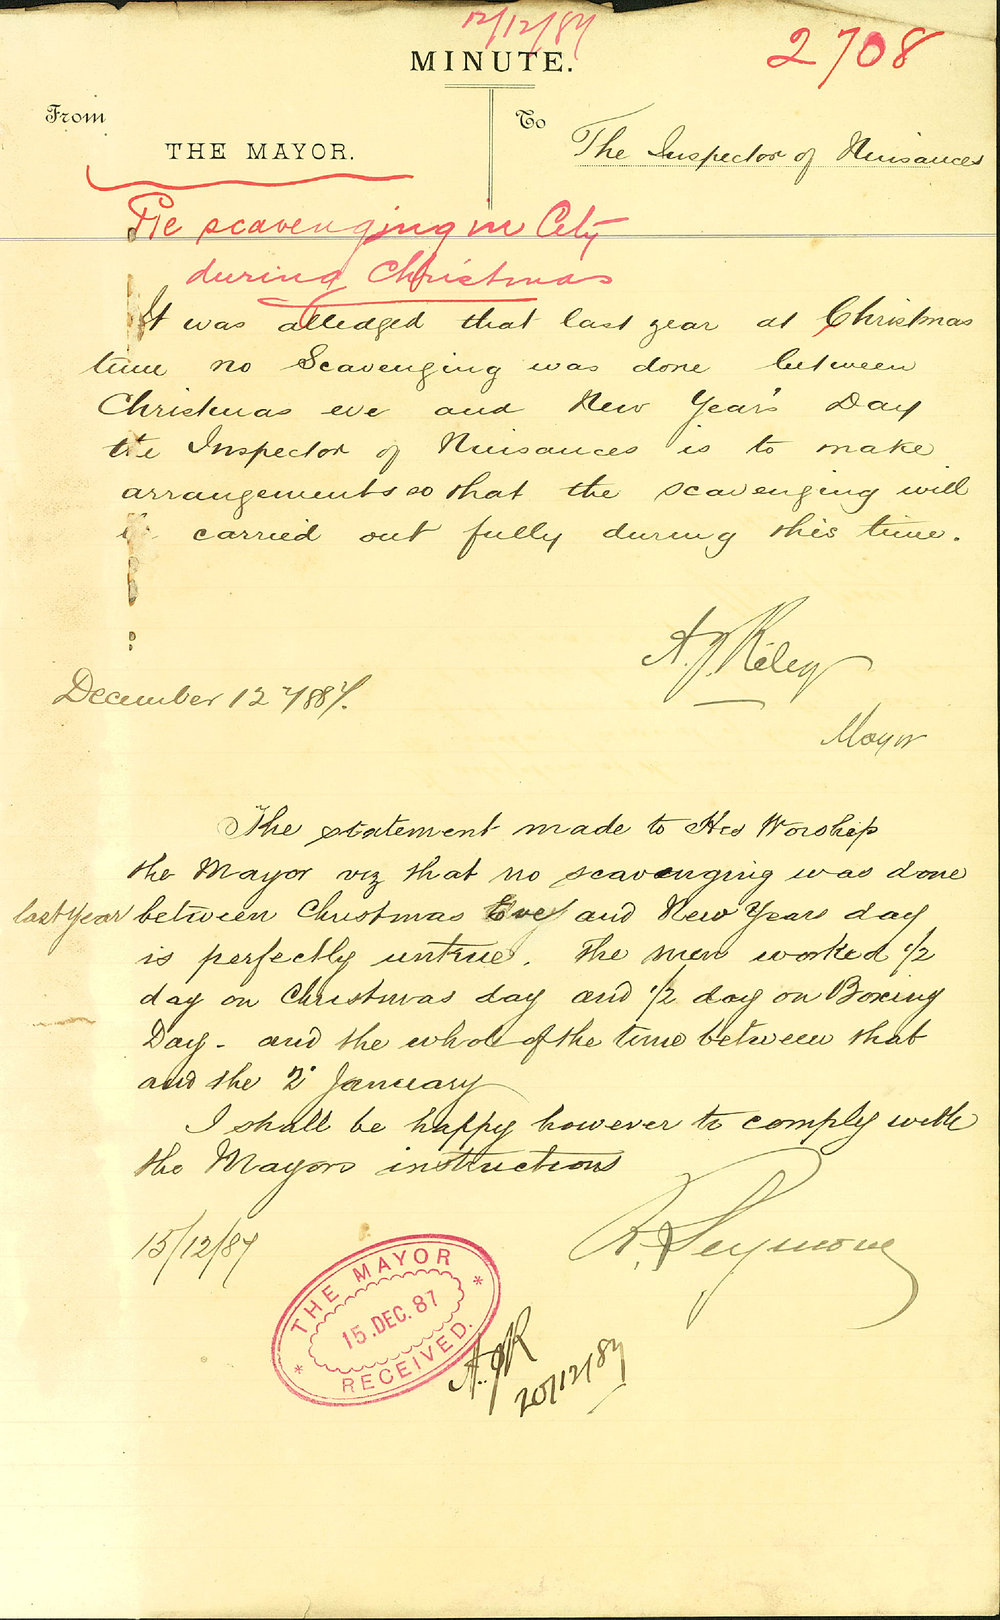 12/12/87
2708
MINUTE.
From
To
THE MAYOR.
The Inspector of Nuisances
Re scavenging in City
during Christmas
It was alledged that last year at Christmas
time no Scavenging was done between
Christmas eve and New Year's Day
the Inspector of Nuisances is to make
arrangements so that the scavenging will
be carried out fully during this time.
A.J. Riley
December 12 / 1887.
Mayor
The statement made to His Worship
the Mayor viz that no scavenging was done
last year between Christmas Eve and New Years day
is perfectly untrue. The men worked 1/2
day on Christmas day and 1/2 day on Boxing
Day - and the whole of the time between that
and the 2d January
I shall be happy however to comply with
the Mayors instructions
15/12/87
R. Seymour
THE MAYOR
15. DEC. 87
RECEIVED.
A.J.R
20/12/87